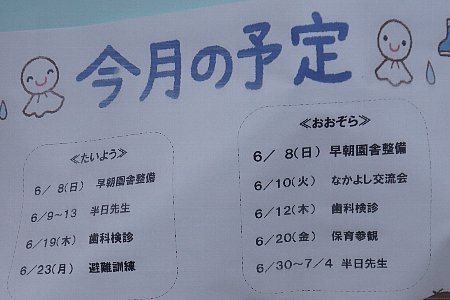 今月の予定
≪たいよう≫
6/ 8(日) 早朝園舎整備
6/9~13 半日先生
6/19(木) 歯科検診
6/23(月) 避難訓練
≪おおぞら≫
6/ 8(日) 早朝園舎整備
6/10(火) なかよし交流会
6/12(木) 歯科検診
6/20(金) 保育参観
6/30~7/4 半日先生